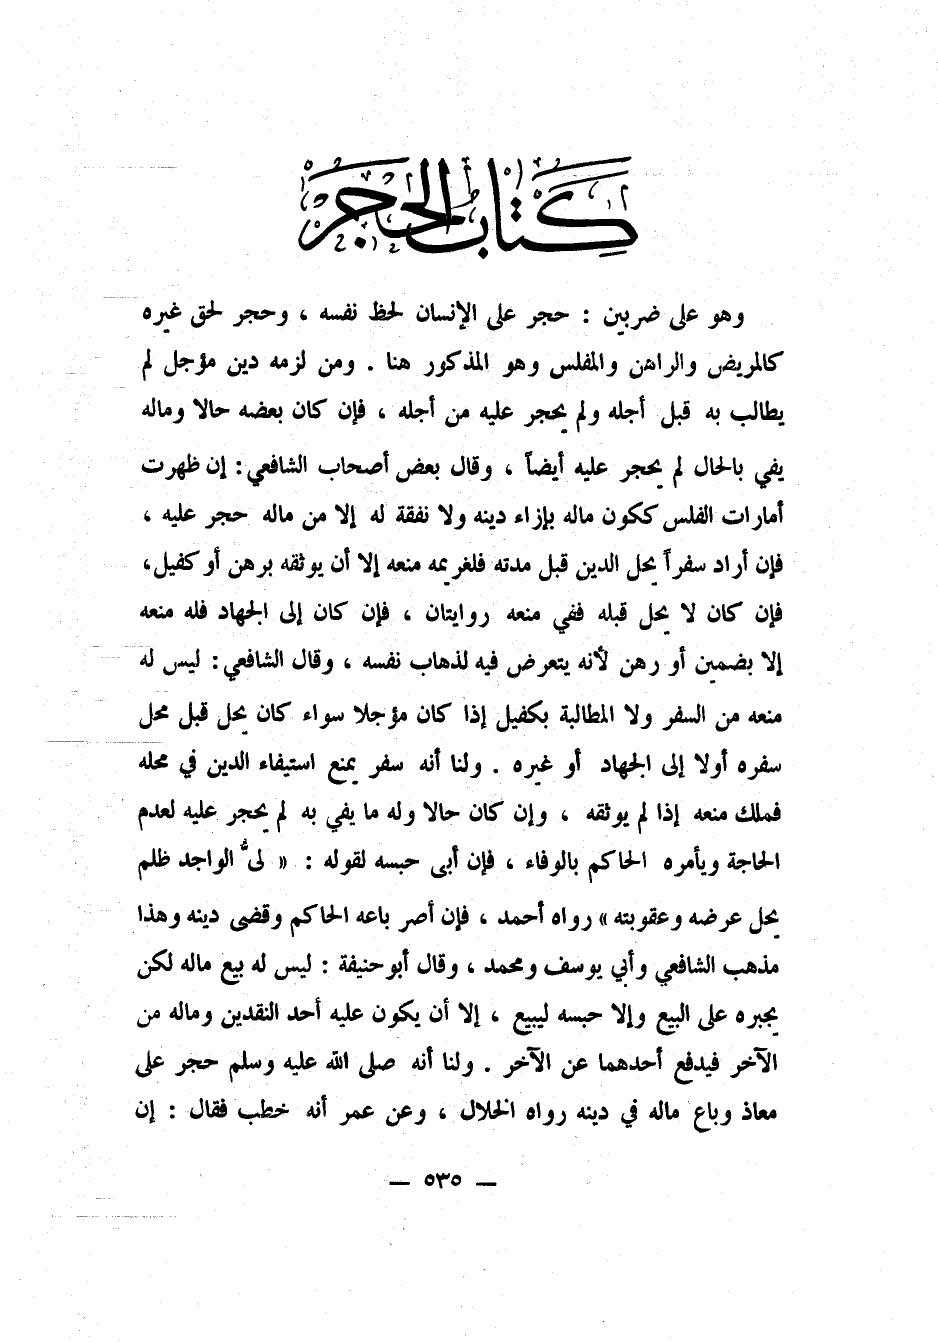 كتاب الحجر
وهو على ضربين : حجر على الإنسان لحظ نفسه ، وحجر لحق غيره
كالمريض والراهن والمفلس وهو المذكور هنا . ومن لزمه دين مؤجل لم
يطالب به قبل أجله ولم يحجر عليه من أجله ، فإن كان بعضه حالا وماله
يفي بالحال لم يحجر عليه أيضاً ، وقال بعض أصحاب الشافعي : إن ظهرت
أمارات الفلس ككون ماله بإزاء دينه ولا نفقة له إلا من ماله حجر عليه ،
فإن أراد سفراً يحل الدين قبل مدته فلغريمه منعه إلا أن يوثقه برهن أو كفيل،
فإن كان لا يحل قبله ففي منعه روايتان ، فإن كان إلى الجهاد فله منعه
إلا بضمين أو رهن لأنه يتعرض فيه لذهاب نفسه ، وقال الشافعي : ليس له
منعه من السفر ولا المطالبة بكفيل إذا كان مؤجلا سواء كان يحل قبل محل
سفره أولا إلى الجهاد أو غيره . ولنا أنه سفر يمنع استيفاء الدين في محله
فملك منعه إذا لم يوثقه ، وإن كان حالا وله ما يفي به لم يحجر عليه لعدم
الحاجة ويأمره الحاكم بالوفاء ، فإن أبى حبسه لقوله : « لىُّ الواجد ظلم
يحل عرضه وعقوبته » رواه أحمد ، فإن أصر باعه الحاكم وقضى دينه وهذا
مذهب الشافعي وأبي يوسف ومحمد ، وقال أبو حنيفة : ليس له بيع ماله لكن
يجبره على البيع وإلا حبسه ليبيع ، إلا أن يكون عليه أحد النقدين وماله من
الآخر فيدفع أحدهما عن الآخر . ولنا أنه صلى الله عليه وسلم حجر على
معاذ وباع ماله في دينه رواه الخلال ، وعن عمر أنه خطب فقال : إن
— ٥٣٥ —